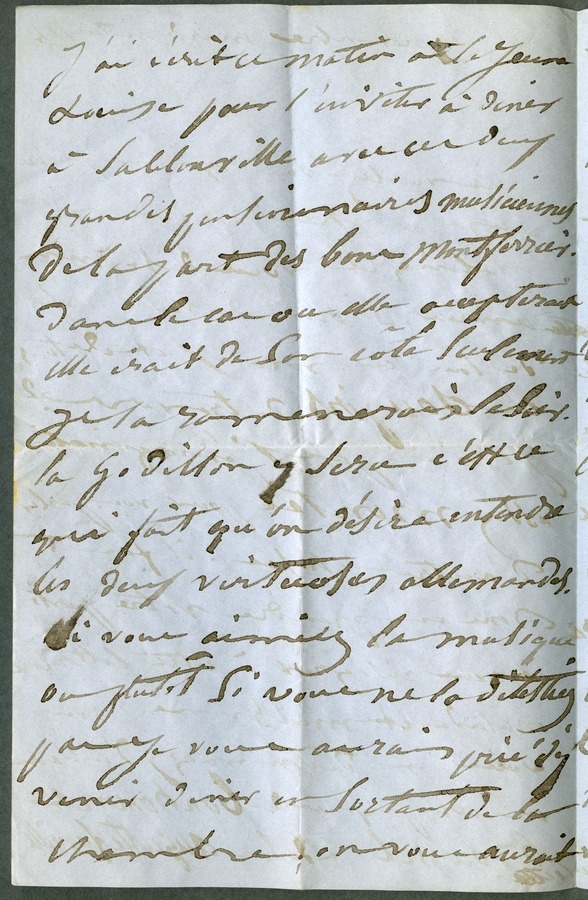 J'ai écrit ce matin à la jeune
Louise pour l'inviter à diner
à Sablonville avec ces deux
grandes pensionnaires musiciennes
de la part des bons Montferrier.
dans le cas ou elle accepterait
elle irait de son coté seulement
je la ramenerais le soir.
la Godillon y sera c'est ce
qui fait qu'on désire entendre
les deux virtuoses allemandes.
si vous aimiez la musique
ou plutôt si vous ne la détestiez
pas je vous aurais prié d'y
venir diner en sortant de la
chambre, on vous aurait